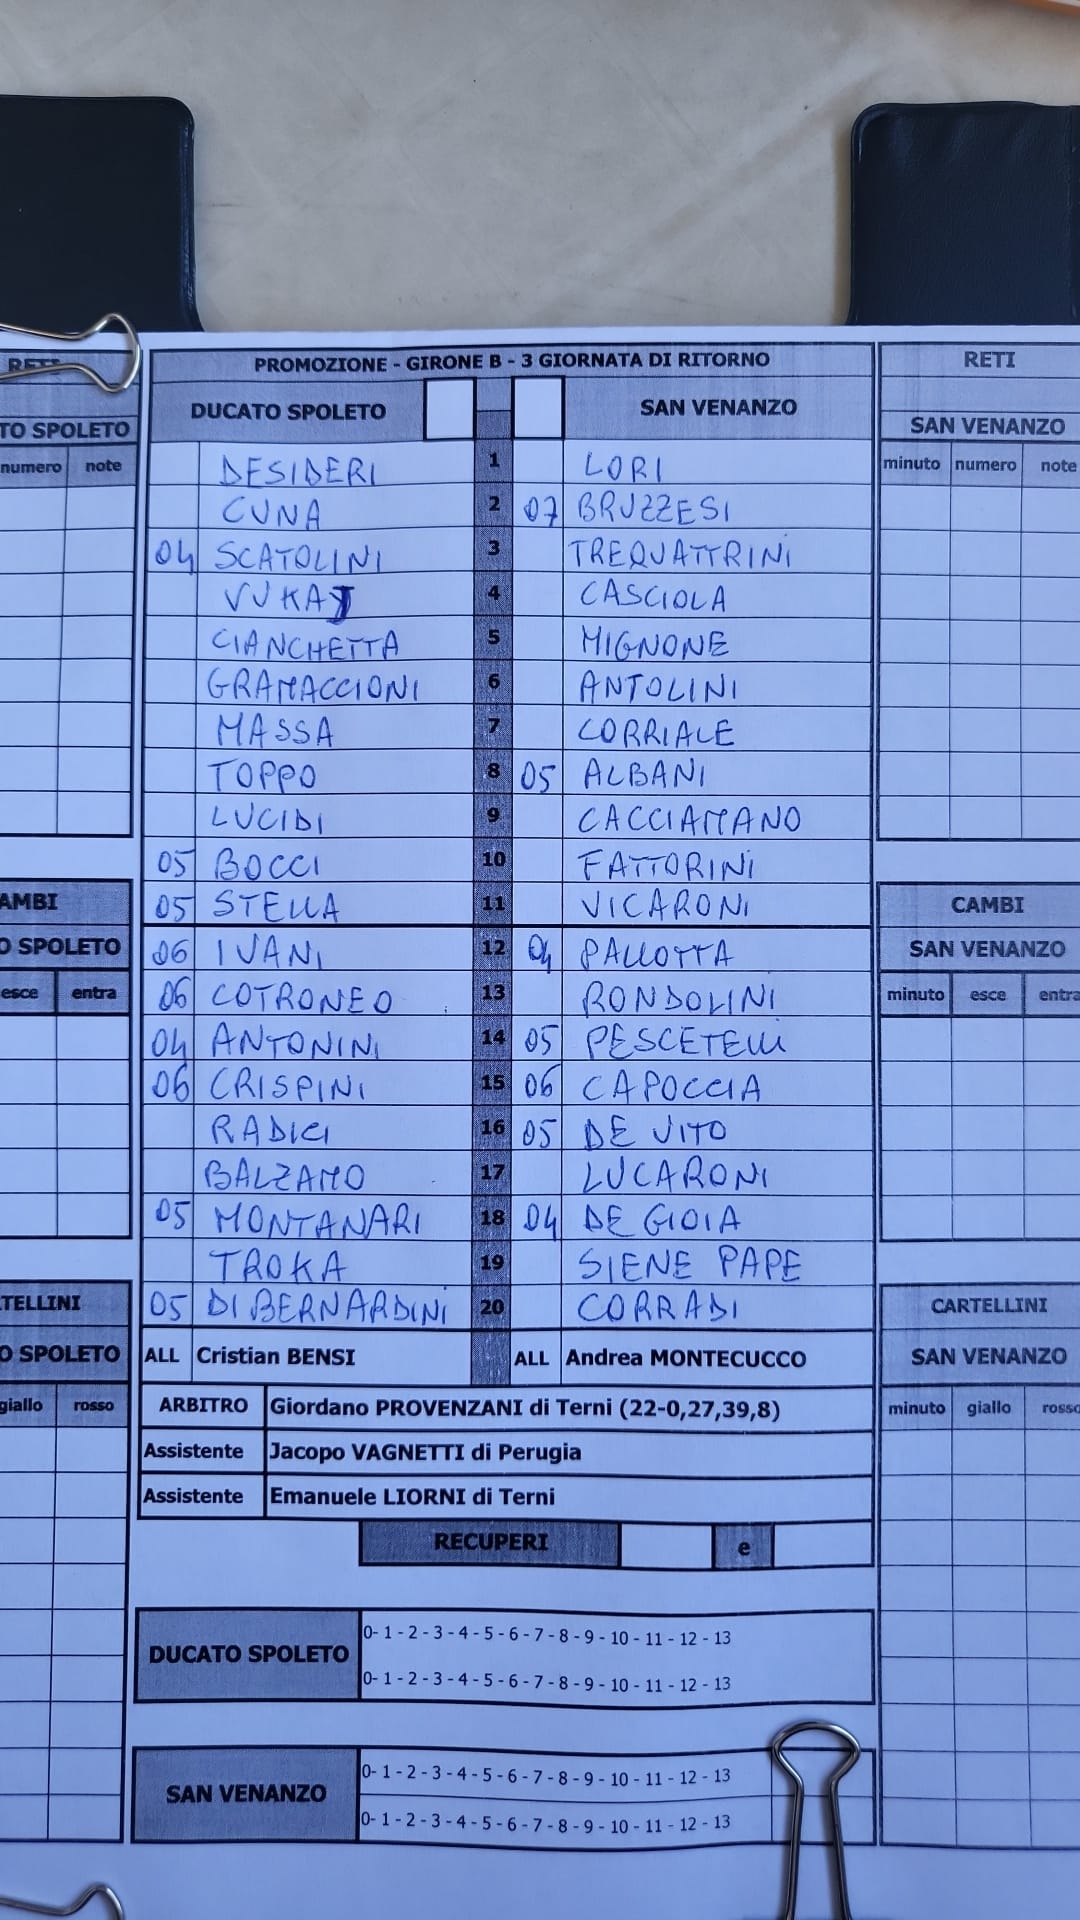 PROMOZIONE - GIRONE B - 3 GIORNATA DI RITORNO
DUCATO SPOLETO SAN VENANZO
DESIDERI 1 LORI
CUNA 2 07 BRUZZESI
04 SCATOLINI 3 TREQUATTRINI
4 CASCIOLA
CIANCHETTA 5 MIGNONE
GRAMACCIONI 6 ANTOLINI
MASSA 7 CORRIALE
TOPPO 8 05 ALBANI
LUCIDI 9 CACCIAMANO
05 BOCCI 10 FATTORINI
05 STELLA 11 VICARONI
06 IVANI 12 04 PALLOTTA
06 COTRONEO 13 RONDOLINI
04 ANTONINI 14 05 PESCETELLI
06 CRISPINI 15 06 CAPOCCIA
RADICI 16 05 DE VITO
BALZAMO 17 LUCARONI
05 MONTANARI 18 04 DE GIOIA
TROKA 19 SIENE PAPE
05 DI BERNARDINI 20 CORRADI
ALL Cristian BENSI ALL Andrea MONTECUCCO
ARBITRO Giordano PROVENZANI di Terni (22-0,27,39,8)
Assistente Jacopo VAGNETTI di Perugia
Assistente Emanuele LIORNI di Terni
RECUPERI e
DUCATO SPOLETO
0- 1 - 2 - 3 - 4 - 5 - 6 - 7 - 8 - 9 - 10 - 11 - 12 - 13
0- 1 - 2 - 3 - 4 - 5 - 6 - 7 - 8 - 9 - 10 - 11 - 12 - 13
SAN VENANZO
0- 1 - 2 - 3 - 4 - 5 - 6 - 7 - 8 - 9 - 10 - 11 - 12 - 13
0- 1 - 2 - 3 - 4 - 5 - 6 - 7 - 8 - 9 - 10 - 11 - 12 - 13
RETI
TO SPOLETO
numero note
AMBI
O SPOLETO
esce entra
TELLINI
O SPOLETO
giallo rosso
RETI
SAN VENANZO
minuto numero note
CAMBI
SAN VENANZO
minuto esce entra
CARTELLINI
SAN VENANZO
minuto giallo rosso